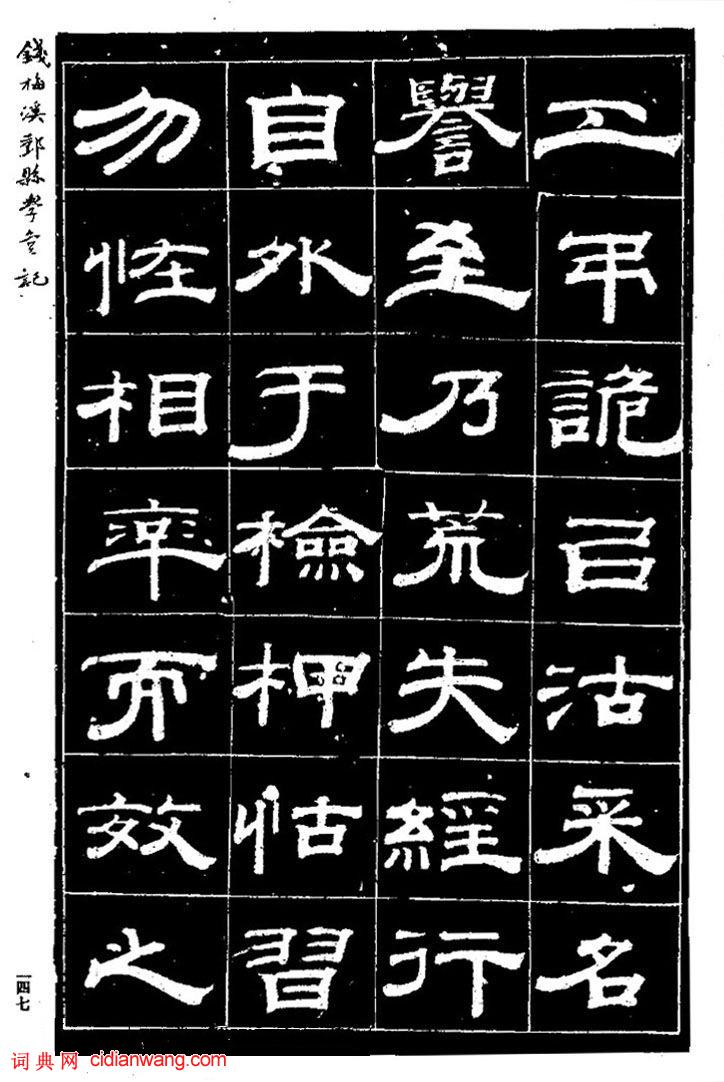 工弔詭㠯沽采名
譽至乃荒失經行
自外于檢柙怙習
勿恠相率而效之
錢梅溪鄞縣學宮記
一四七
词典网 cidianwang.com